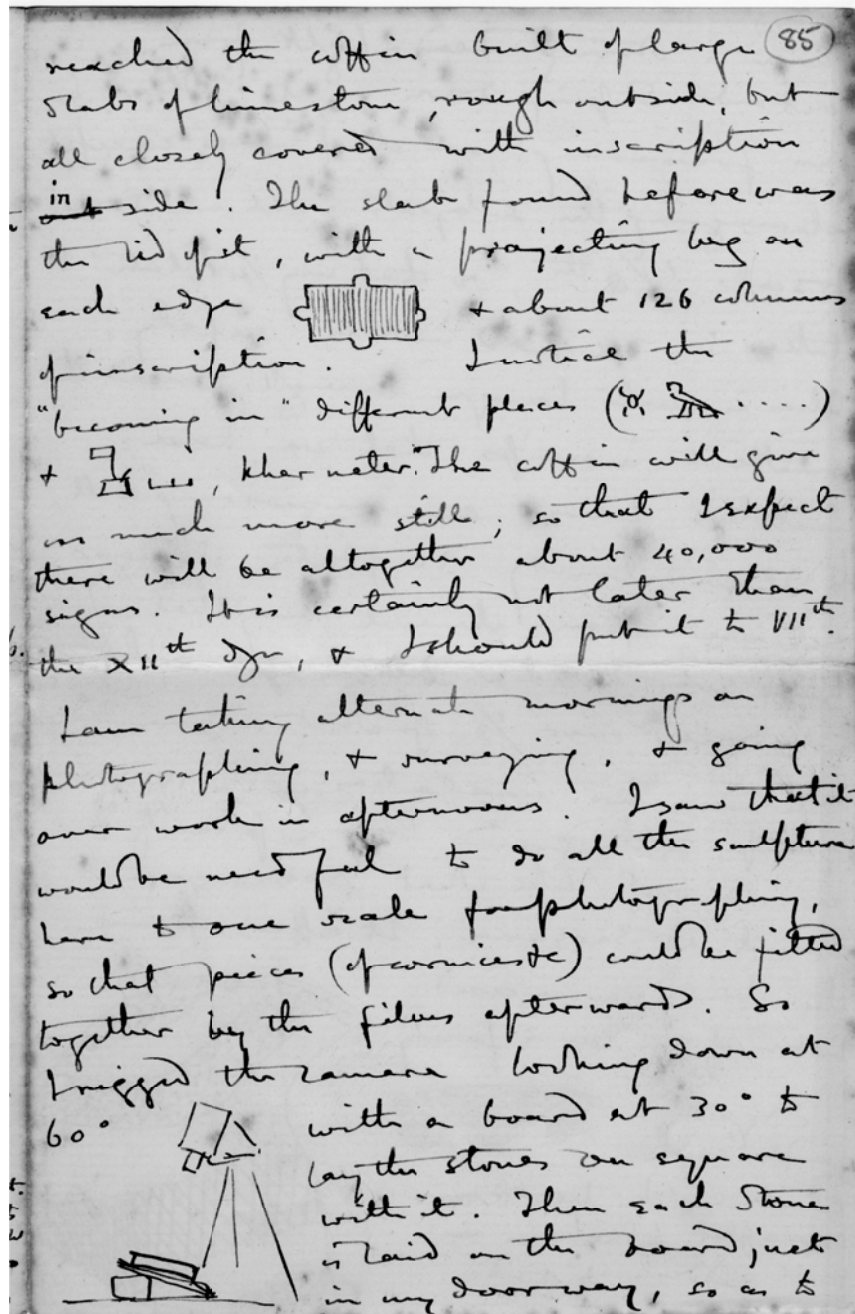 85
reached the coffin built of large
slabs of limestone, rough outside, but
all closely covered with inscription
in side. The slab found before was
the lid of it, with a projecting lug on
each edge & about 126 columns
of inscription. I notice the
"becoming in" different places (....)
& kher neter. The coffin will give
as much more still; so that I expect
there will be altogether about 40,000
signs. It is certainly not later than
the XIIth dyn, & I should put it to VIIth.
I am taking alternate mornings on
photographing, & surveying, & going
over work in afternoons. I saw that it
would be needful to do all the sculpture
here to one scale for photographing,
so that pieces (of cornices &c) could be fitted
together by the films afterwards. So
I rigged the camera looking down at
60° with a board at 30° to
lay the stones on square
with it. Then each stone
is laid on the board just
in my doorway, so as to